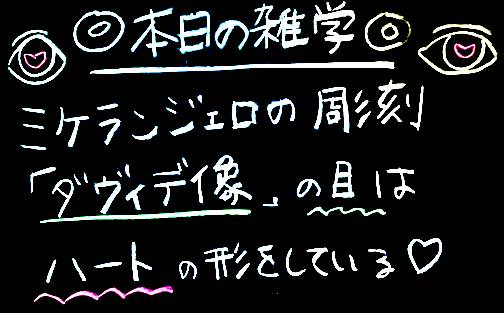 ◎本日の雑学◎
ミケランジェロの彫刻
「ダヴィデ像」の目は
ハートの形をしている♡